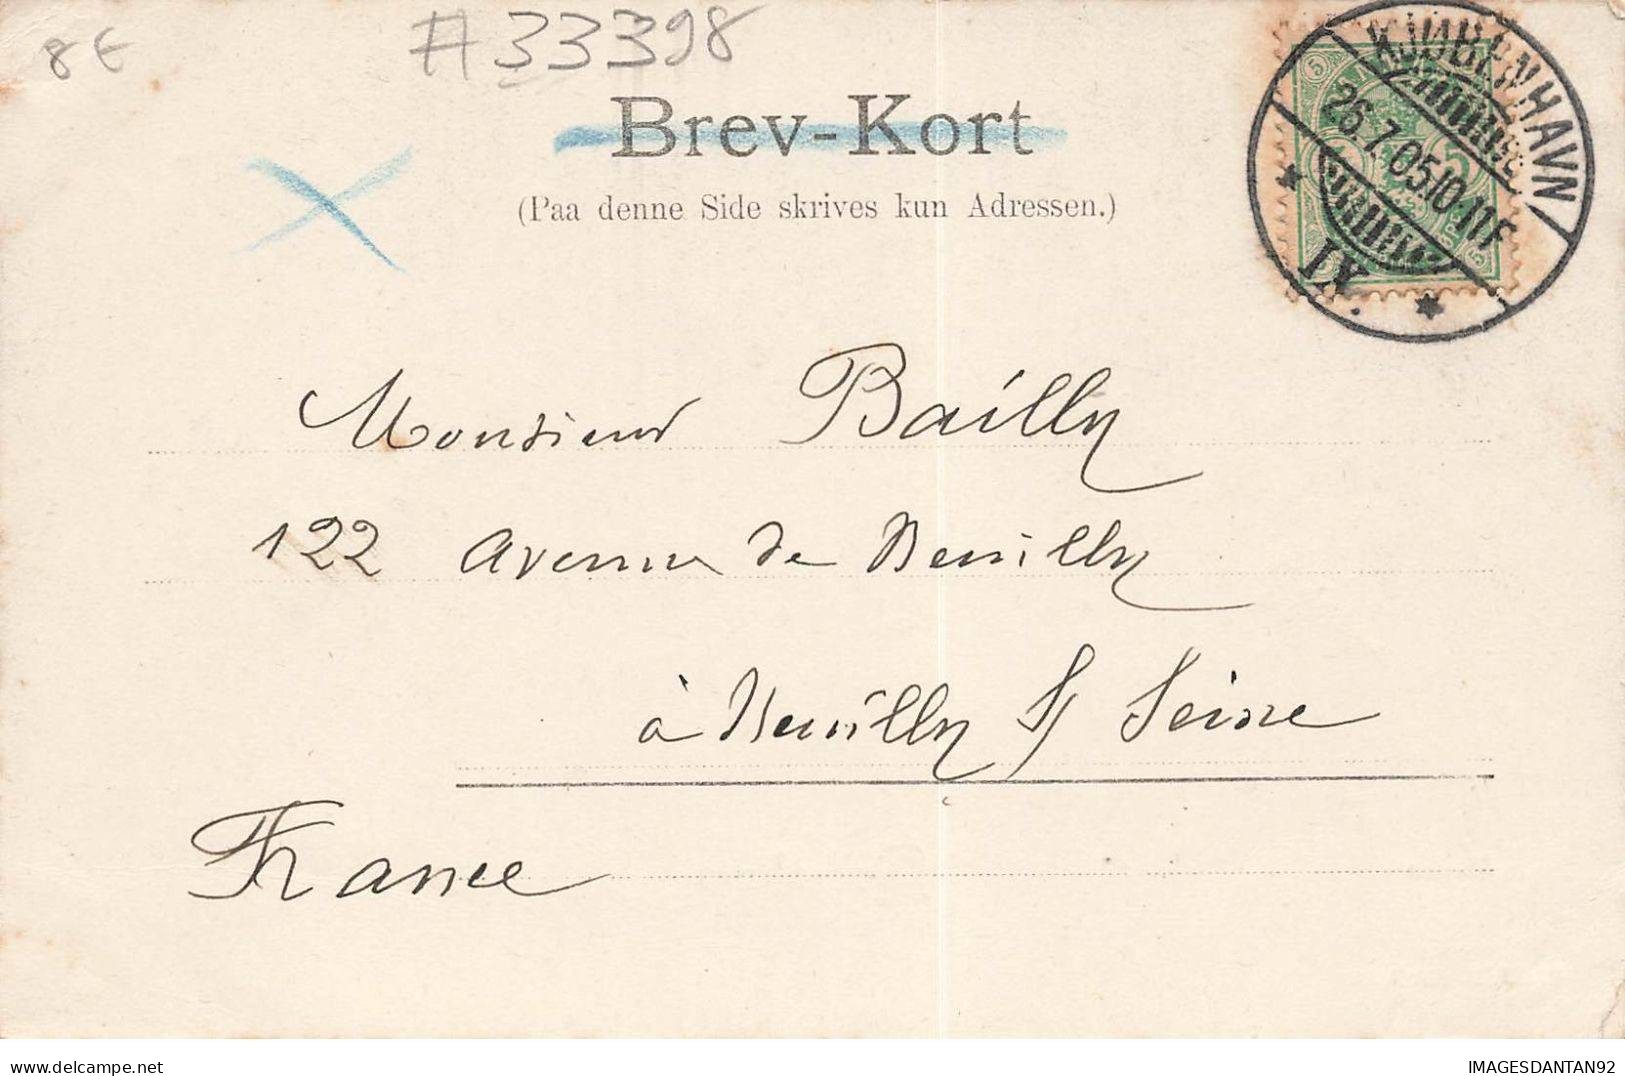 8€
#33398
Brev-Kort
(Paa denne Side skrives kun Adressen.)
KJØBENHAVN
26.7.05.10-11F
XI.
5
Monsieur Bailly
122 Avenue de Neuilly
à Neuilly S/ Seine
France
IMAGESDANTAN92